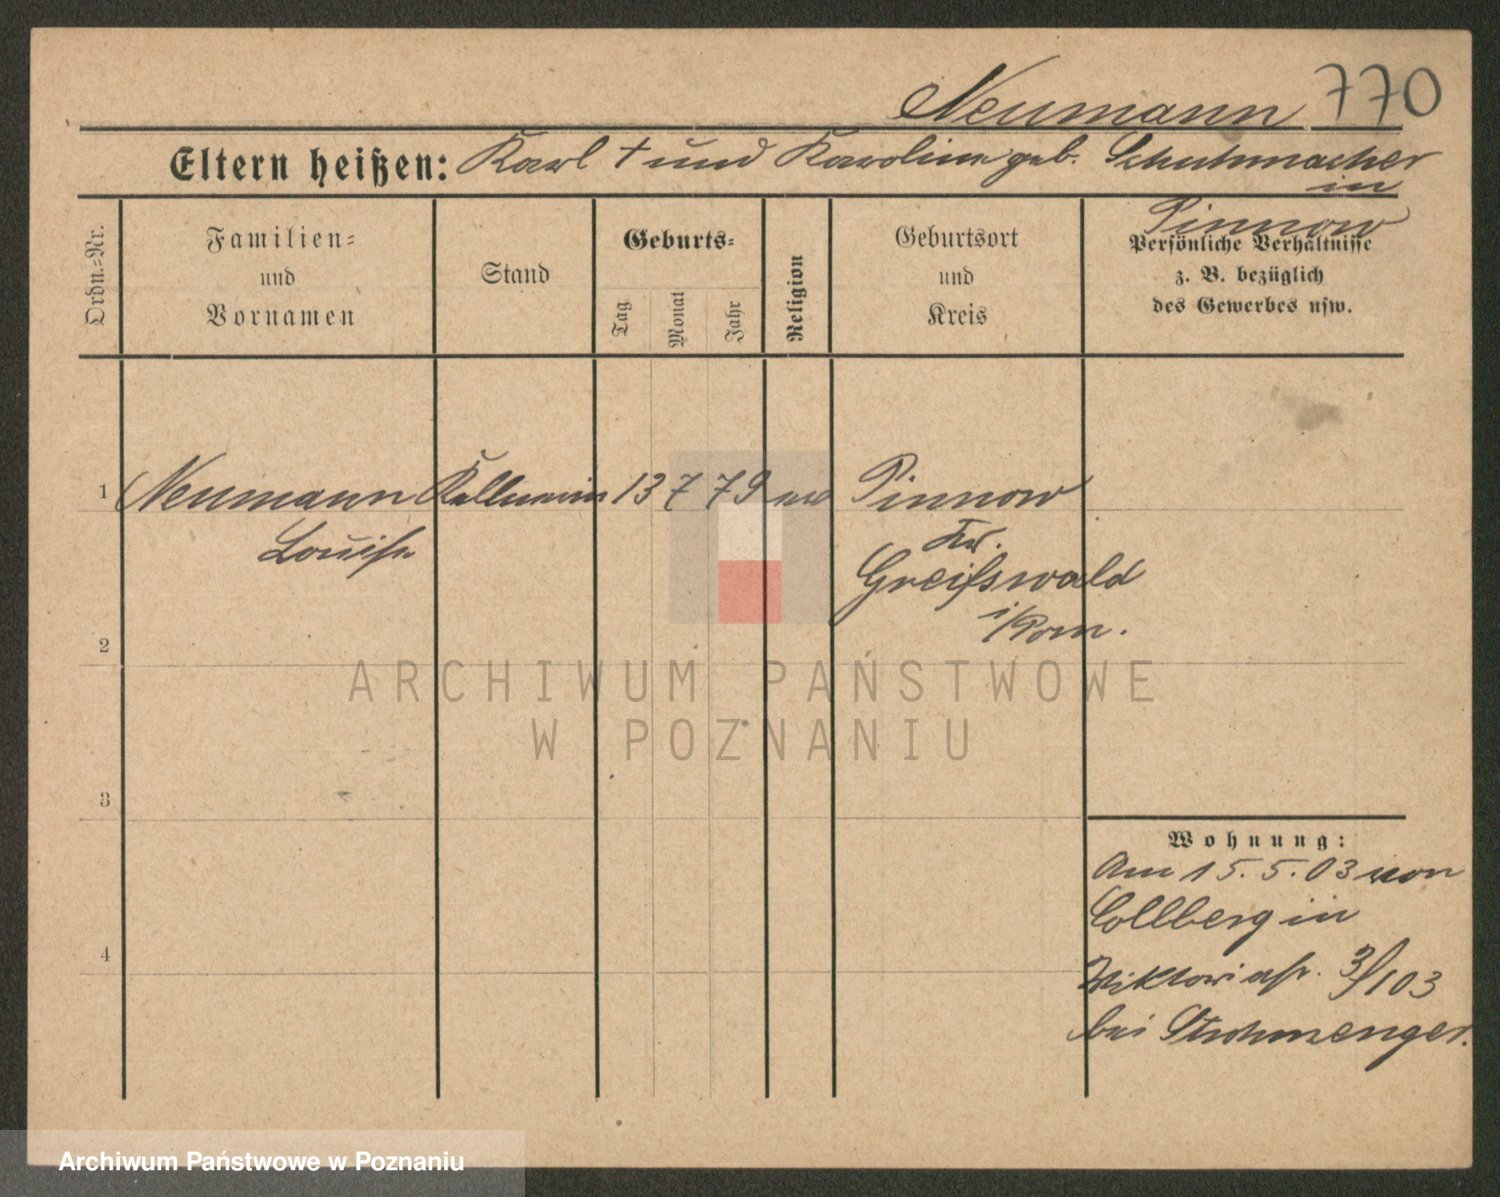 Neumann 770
Eltern heißen: Karl † und Karoline geb. Schuhmacher
in
Pinnow
Ordn.-Nr.
Familien-
und
Vornamen
Stand
Geburts-
Tag
Monat
Jahr
Religion
Geburtsort
und
Kreis
Persönliche Verhältnisse
z. B. bezüglich
des Gewerbes usw.
1 Neumann Kellnerin 13 7 79 Pinnow
Louise
Kr.
Greifswald
i/Pom.
2
3
4
Wohnung:
Am 15.5.03 von
Collberg in
Viktoriastr. 3/103
bei Strohmenger.
ARCHIWUM PAŃSTWOWE
W POZNANIU
Archiwum Państwowe w Poznaniu